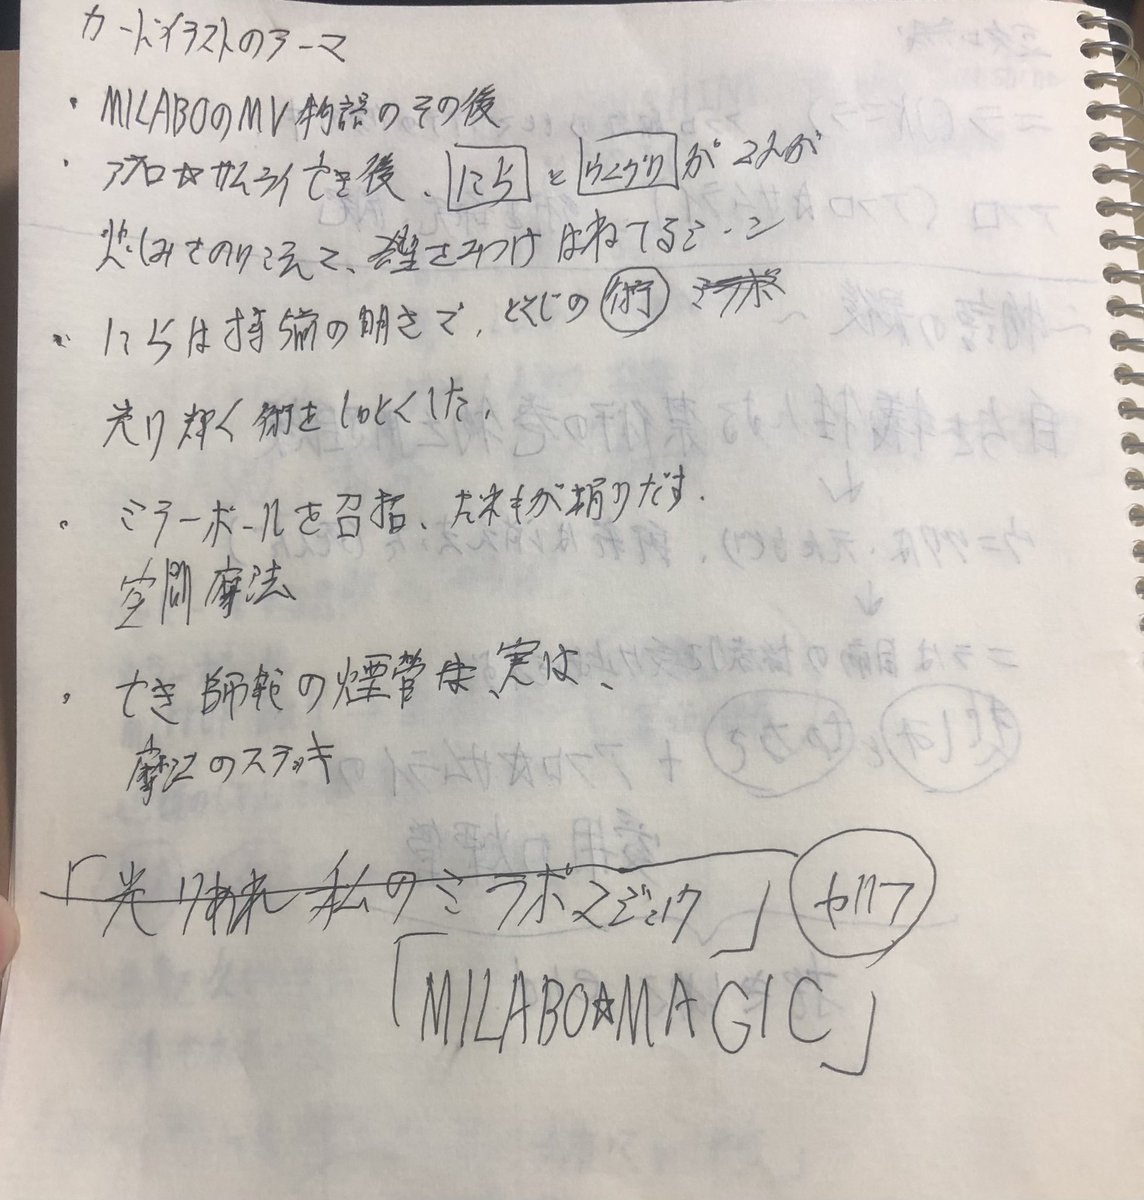 カードイラストのテーマ
・MILABOのMV物語のその後
・アフロ☆サムライ亡き後、にらとウニグリが
悲しみをのりこえて、希望をみつけはねてるシーン
・にらは持前の明るさで、とくじの術 ミラボ
光り輝く術をしゅとくした。
・ミラーボールを召喚、
空間魔法
・亡き師範の煙管は、実は、
魔法のステッキ
「光りあれ 私のミラボマジック」 セリフ
「MILABO☆MAGIC」